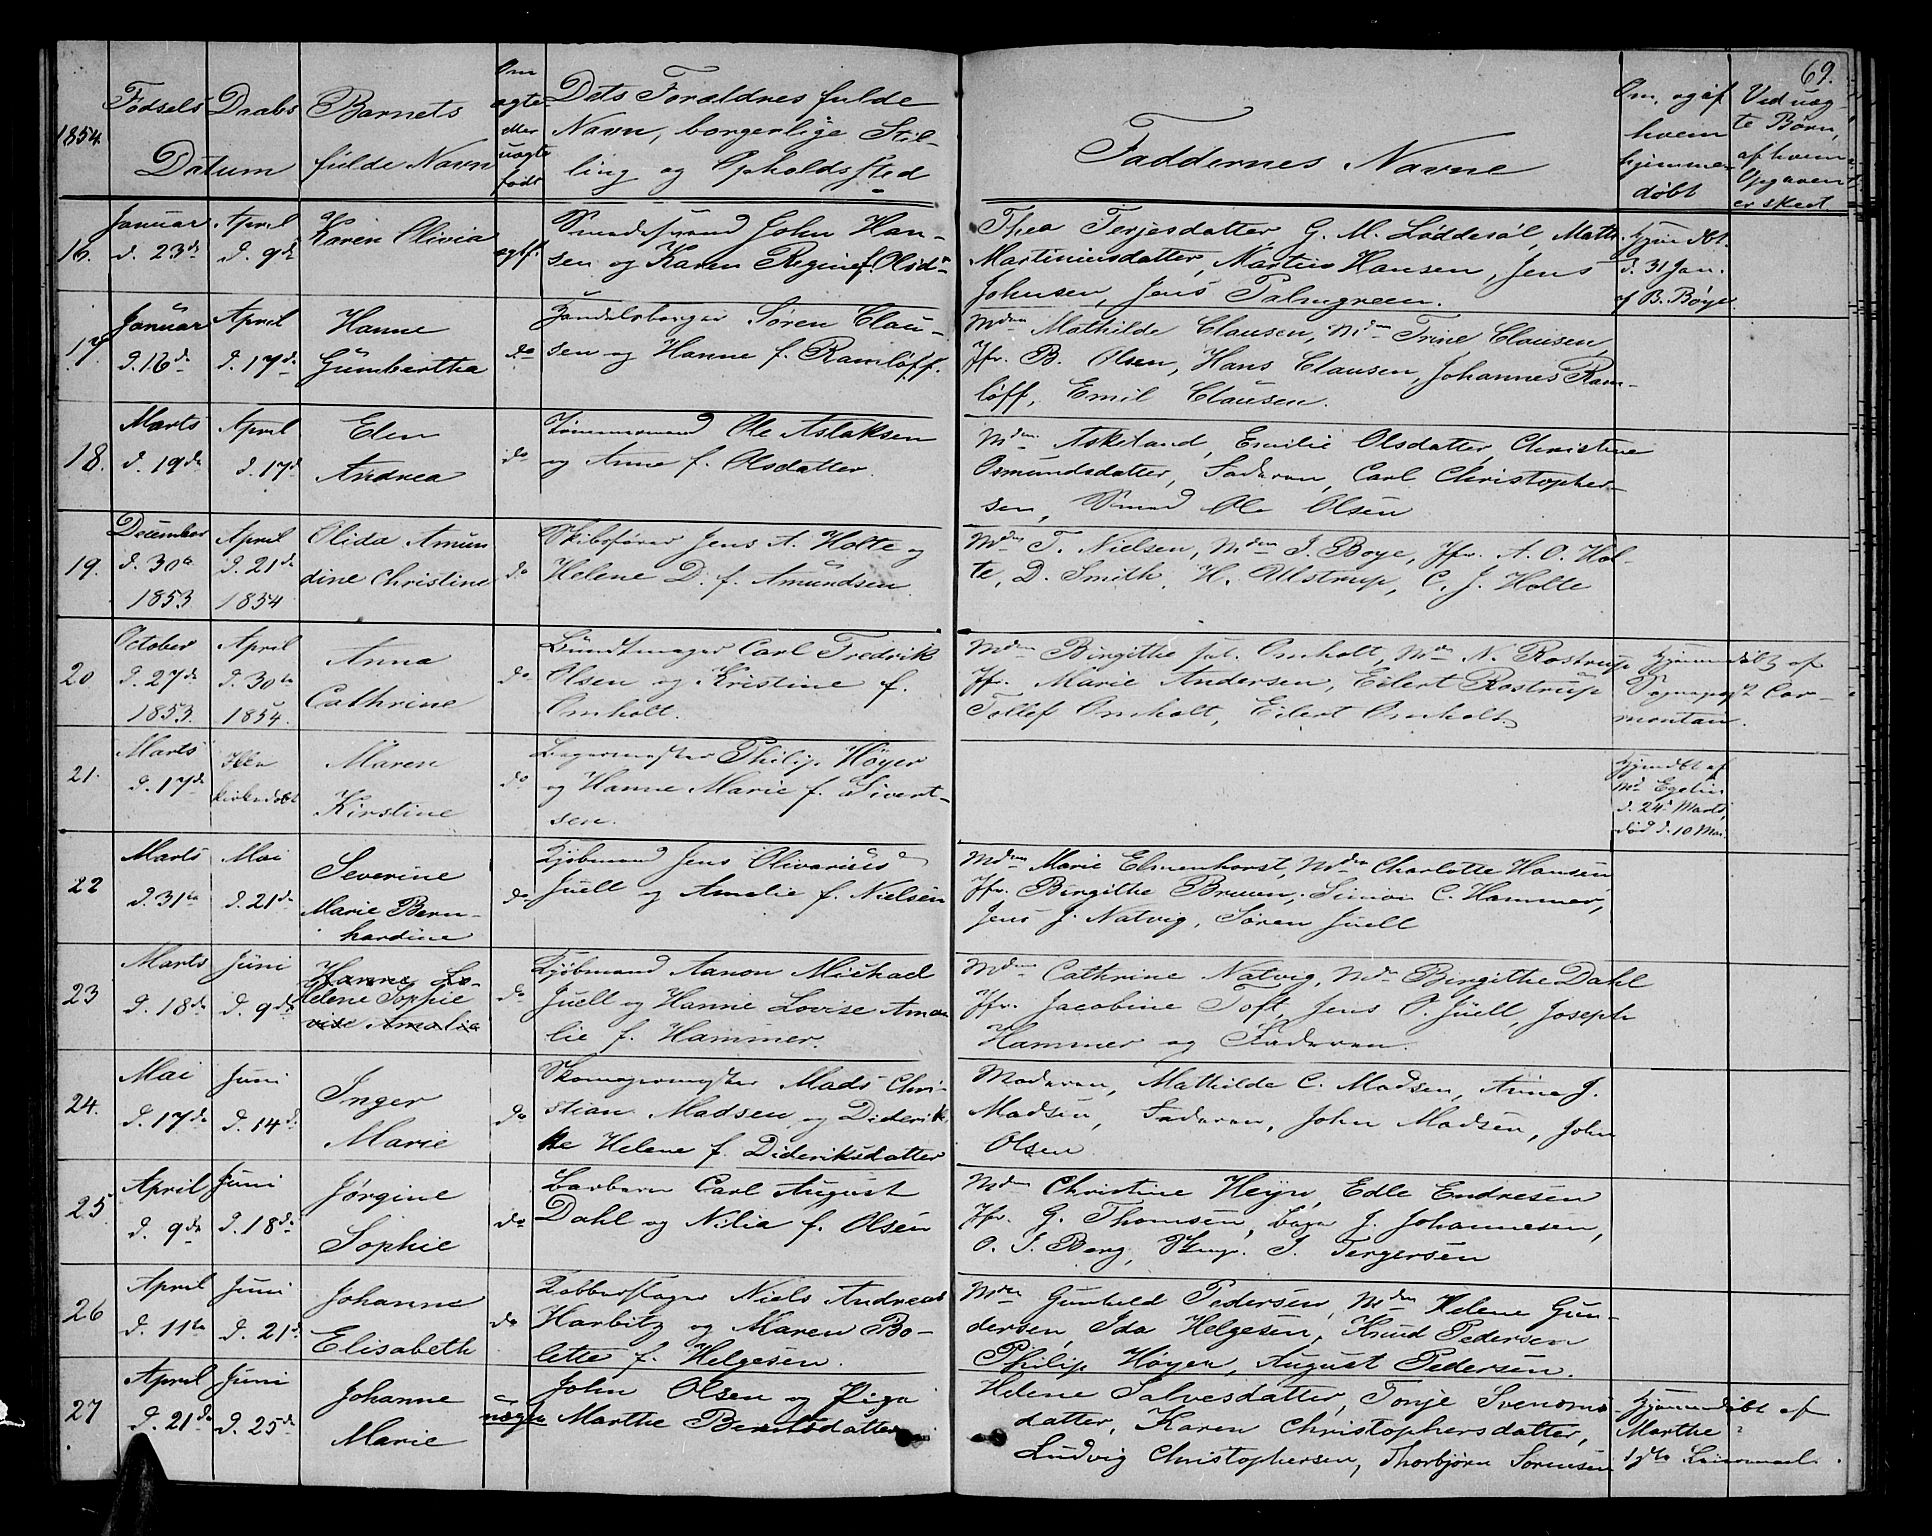 69.
1854.
Fødsels Daabs
Datum
Barnets
fulde Navn
Om
ægte
eller
uægte
født
Dets Forældres fulde
Navn, borgerlige Stil-
ling og Opholdssted
Faddernes Navne
Om, og af
hvem
hjemme-
døbt
Ved uæg-
te Børn,
af hvem
Opgaven
er skeet.
16.
Januar
d. 23de
April
d. 9de
Karen Olivia
John Han-
sen og Karen Regine f. Olsd.
Thea Terjesdatter G. M. Løddesøl, Math.
Martiniusdatter, Martin Hansen, Jens
Johnsen, Jens Palmgreen.
d. 31 Jan.
af B. Bøye.
17.
Januar
d. 16de
April
d. 17de
Hanne
Gumbertha
do
Handelsborger Søren Clau-
sen og Hanne f. Ramløff.
Mdm Mathilde Clausen, Mdm Trine Clausen,
Jfr. B. Olsen, Hans Clausen, Johannes Ram-
løff, Emil Clausen.
18.
Marts
d. 19de
April
d. 17d
Elen
Andrea
do
Tømmermand Ole Aslaksen
og Anne f. Olsdatter.
Mdm Askeland, Emilie Olsdatter, Christine
Osmundsdatter, Faderen, Carl Christopher-
sen, Smed Ole Olsen
19.
December
d. 30te
1853
April
d. 21de
1854
Olida Amun
dine Christine
do
Skibsfører Jens A. Holte og
Helene D. f. Amundsen
Mdm T. Nielsen, Mdm J. Boye, Jfr. A. O. Hol-
te, D. Smith, H. Ulstrup, C. J. Holte
20
October
d. 27de
1853.
April
d. 30te
1854.
Anna
Cathrine
do
Bundtmager Carl Fredrik
Olsen og Kristine f.
Omholt.
Mdm Birgitte sal. Omholt, Mdm N. Rostrup
Jfr. Marie Andersen, Eilert Rostrup
Tollef Omholt, Eilert Omholt.
Hjemmedøbt af
Sognepræst Cor-
montan.
21.
Marts
d. 17de
Ikke
kirkedøbt
Maren
Kirstine
do
Bagermester Philip Høyer
og Hanne Marie f. Sivert-
sen.
Hjemdbt af
Md Egelin
d. 24d Marts,
død d. 10 Mai.
22
Marts
d. 31te
Mai
d. 21de
Severine
Marie Bern-
hardine
do
Kjøbmand Jens Olivarius
Juell og Amalie f. Nielsen
Mdm Marie Elmenhorst, Mdm Charlotte Hansen
Jfr. Birgithe Bruun, Simon C. Hammer,
Jens J. Natvig, Søren Juell
23
Marts
d. 18de
Juni
d. 9de
Hanne Lo-
Helene Sophie
vise Amalia
do
Kjøbmand Aanon Michael
Juell og Hanne Lovise Ama
lie f. Hammer.
Mdm Cathrine Natvig, Mdm Birgithe Dahl
Jfr. Jacobine Toft, Jens O. Juell, Joseph
Hammer og Faderen.
24.
Mai
d. 17de
Juni
d. 14de
Inger
Marie
do
Skomagermester Mads Chri-
stian Madsen og Diderik
ke Helene f. Dideriksdatter
Moderen, Mathilde C. Madsen, Anna J.
Madsen, Faderen, John Madsen, John
Olsen
25
April
d. 9de
Juni
d. 18de
Jørgine
Sophie
do
Carl August
Dahl og Nilia f. Olsen
Mdm Christine Heyn, Edle Endresen
Jfr. G. Thomsen, J. Johannesen,
O. S. Berg, S. Tergersen
26
April
d. 11te
Juni
d. 21d
Johanne
Elisabeth
do
Kobberslager Niels Andreas
Harbitz og Maren Bo-
lette f. Helgesen.
Mdm Gunhild Pedersen, Mdm Helene Gun-
dersen, Ida Helgesen, Knud Pedersen
Philip Høyer, August Pedersen.
27
April
d. 21de
Juni
d. 25de
Johanne
Marie
uægte
John Olsen og Piga
Marthe Berntsdatter
Helene Salvesdatter, Tonje Svenoms
datter, Karen Christophersdatter,
Ludvig Christophersen, Thorbjørn Sørensen
Hjemmedøbt af
Marthe